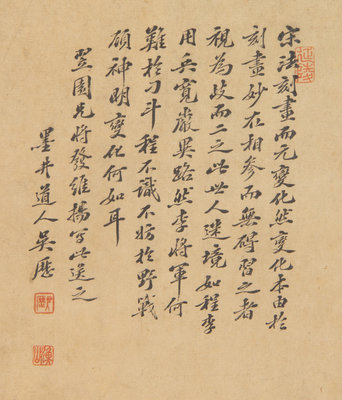 宋法刻畫而元變化然變化本由於
刻畫妙在相參而無碍習之者
視為歧而二之此世人迷境如程李
用兵寬嚴異路然李將軍何
難於刁斗程不識不妨於野戰
顧神明變化何如耳
翌園兄將發維揚寫此送之
墨井道人吳歷